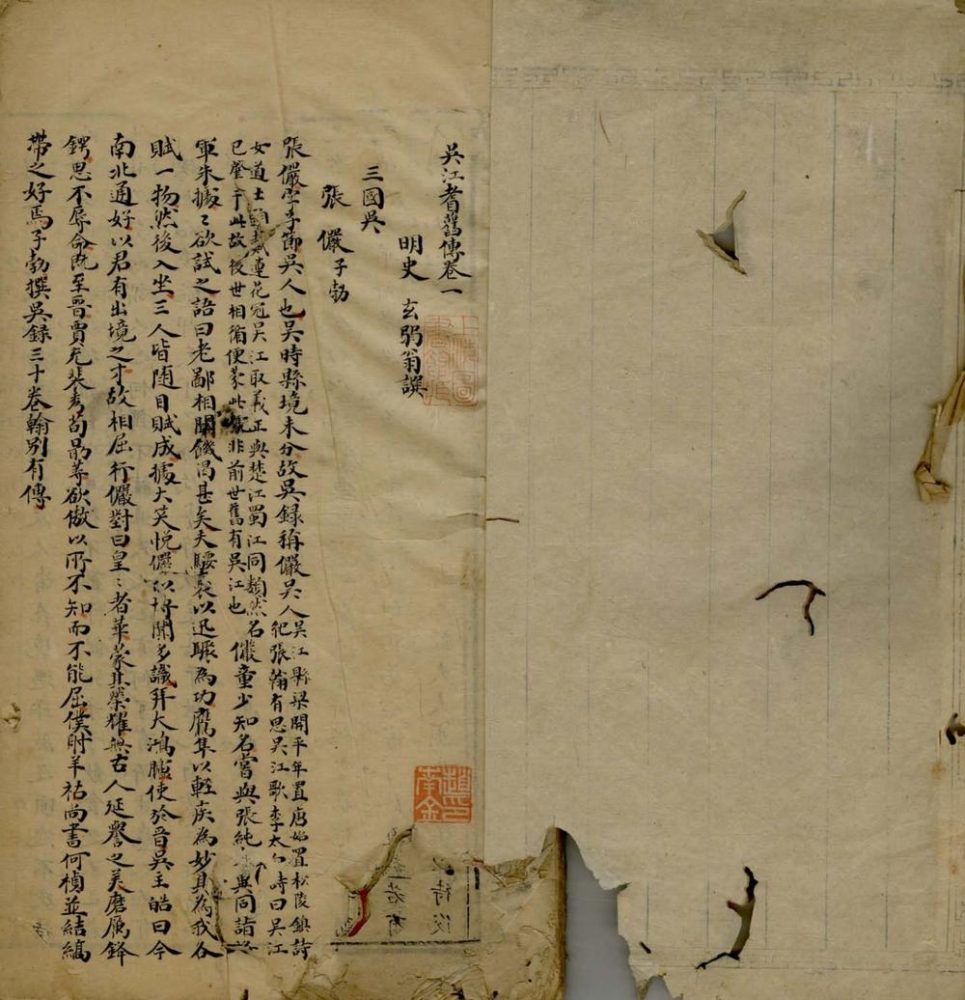 吳江耆舊傳卷一
明史 玄弼翁譔
三國吳
張儼子勃
張儼字子節吳人也吳時縣境未分故吳録稱儼吳人吳江縣梁開平年置唐始置松陵鎮詩
紀張翰有思吳江歌李太白詩曰吳江
女道士頭戴蓮花冠吳江取義正與楚江蜀江同類然名
已肇于此故後世相循便蒙此號非前世舊有吳江也
儼童少知名嘗與張純 異同詣
軍朱據〻欲試之語曰老鄙相聞饑渴甚矣夫騕褭以迅驟為功鷹隼以輕疾為妙其為我各
賦一物然後入坐三人皆隨目賦成據大笑悅儼以博聞多識拜大鴻臚使於晉吳主皓曰今
南北通好以君有出境之才故相屈行儼對曰皇〻者華蒙其榮耀無古人延譽之美磨厲鋒
鍔思不辱命既至晉賈充裴秀荀勗等欲傲以所不知而不能屈僕射羊祜尚書何楨並結縞
帶之好焉子勃撰吳録三十卷翰別有傳
南金